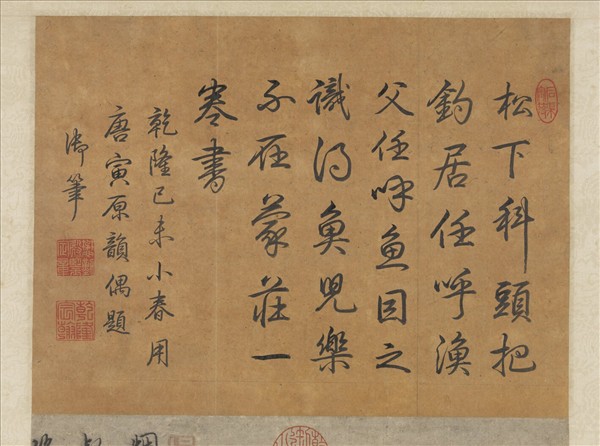 松下科頭把
釣居任呼漁
父任呼魚因之
識得魚兒樂
不在蒙莊一
卷書
乾隆己未小春用
唐寅原韻偶題
御筆